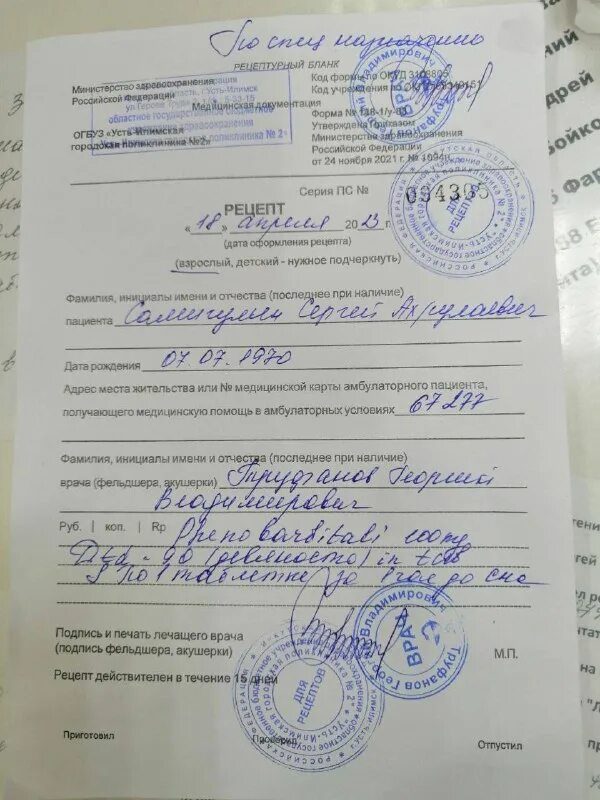 По спец назначению
РЕЦЕПТУРНЫЙ БЛАНК
Министерство здравоохранения
Российской Федерации
Код формы по ОКУД 3108805
Код учреждения по ОКПО
Медицинская документация
ОГБУЗ «Усть-Илимская
городская поликлиника №2»
Форма № 148-1/у-88
Утверждена Приказом
Министерства здравоохранения
Российской Федерации
от 24 ноября 2021 г. № 1094н
Серия ПС № 034305
РЕЦЕПТ
« 18 » апреля 2023 г.
(дата оформления рецепта)
(взрослый, детский - нужное подчеркнуть)
Фамилия, инициалы имени и отчества (последнее при наличии)
пациента Сергей
Дата рождения 07.07.1970
Адрес места жительства или № медицинской карты амбулаторного пациента,
получающего медицинскую помощь в амбулаторных условиях 67277
Фамилия, инициалы имени и отчества (последнее при наличии)
врача (фельдшера, акушерки) Труфанов Георгий
Владимирович
Руб. | коп. | Rp Phenobarbitali 100mg
Dtd - 90 (девяносто) in tab
S По 1 таблетке за 1 час до сна
Подпись и печать лечащего врача
(подпись фельдшера, акушерки)
М.П.
Рецепт действителен в течение 15 дней
Приготовил
Проверил
Отпустил
ВРАЧ
ДЛЯ РЕЦЕПТОВ